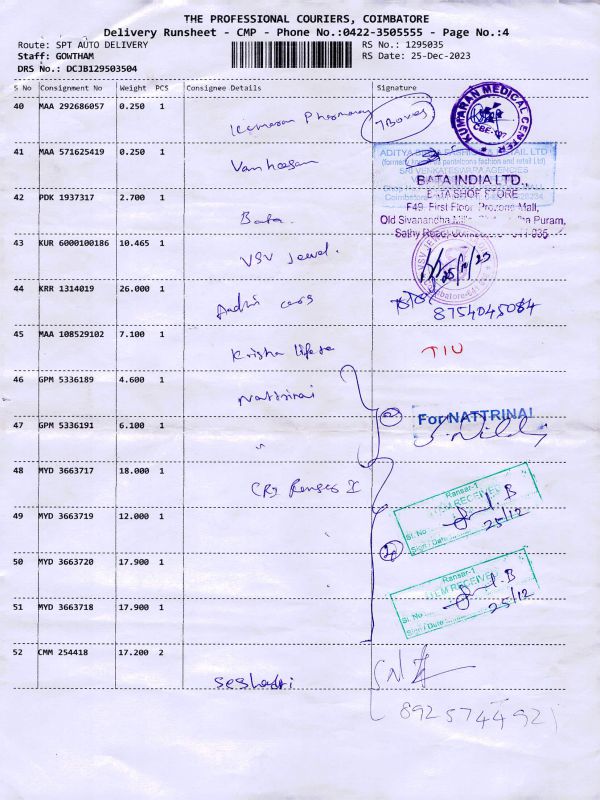 THE PROFESSIONAL COURIERS, COIMBATORE
Delivery Runsheet - CMP - Phone No.:0422-3505555 - Page No.:4
Route: SPT AUTO DELIVERY RS No.: 1295035
Staff: GOWTHAM RS Date: 25-Dec-2023
DRS No.: DCJB129503504
S No Consignment No Weight PCS Consignee Details Signature
40 MAA 292686057 0.250 1
Kumaran Pharmacy 7 Boxes
KUMARAN MEDICAL CENTER
CBE-
41 MAA 571625419 0.250 1
Vanheusan
ADITYA BIRLA FASHION RETAIL LTD
(formerly known as pantaloons fashion and retail Ltd)
SRI VENKATESWARA AGENCIES
42 PDK 1937317 2.700 1
Bata.
BATA INDIA LTD.,
BATA SHOP STORE
F49, First Floor, Prozone Mall,
Old Sivanandha Mills, Puram,
Sathy Road, Coimbatore - 641 035
43 KUR 6000100186 10.465 1
VSV Jewel.
25/12/23
44 KRR 1314019 26.000 1
Andhi cars
8754045084
45 MAA 108529102 7.100 1
Krisha lifete
TIU
46 GPM 5336189 4.600 1
Nattrinai
For NATTRINAI
47 GPM 5336191 6.100 1
"
2
48 MYD 3663717 18.000 1
Ranser-1
ITEM RECEIVED
Sl. No
Sign / Date
25/12
49 MYD 3663719 12.000 1
50 MYD 3663720 17.900 1
4
Ranser-1
ITEM RECEIVED
Sl. No
Sign / Date
25/12
51 MYD 3663718 17.900 1
52 CMM 254418 17.200 2
Seshadri
8925744921